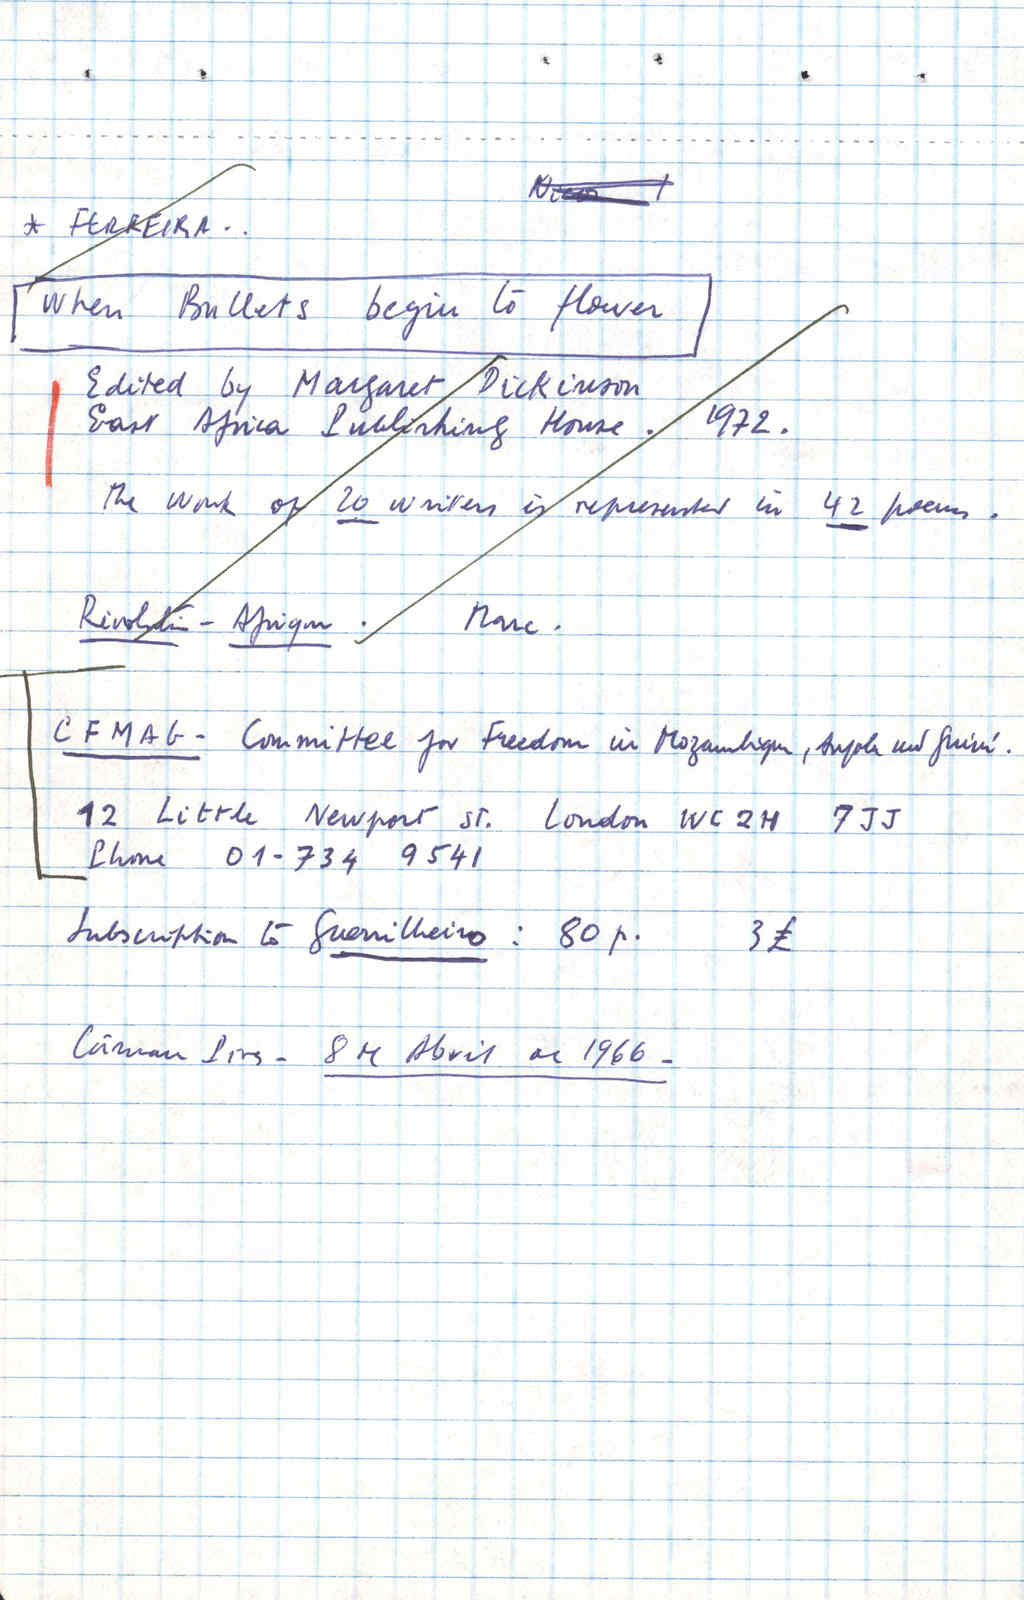 * FERREIRA..
When Bullets begin to flower
Edited by Margaret Dickinson
East Africa Publishing House. 1972.
The work of 20 writers is represented in 42 poems.
- Afrique.
CFMAG - Committee for Freedom in Mozambique, Angola and Guiné.
12 Little Newport St. London WC2H 7JJ
Phone 01-734 9541
Subscription to Guerrilheiro : 80 p. 3£
8 de Abril de 1966 -